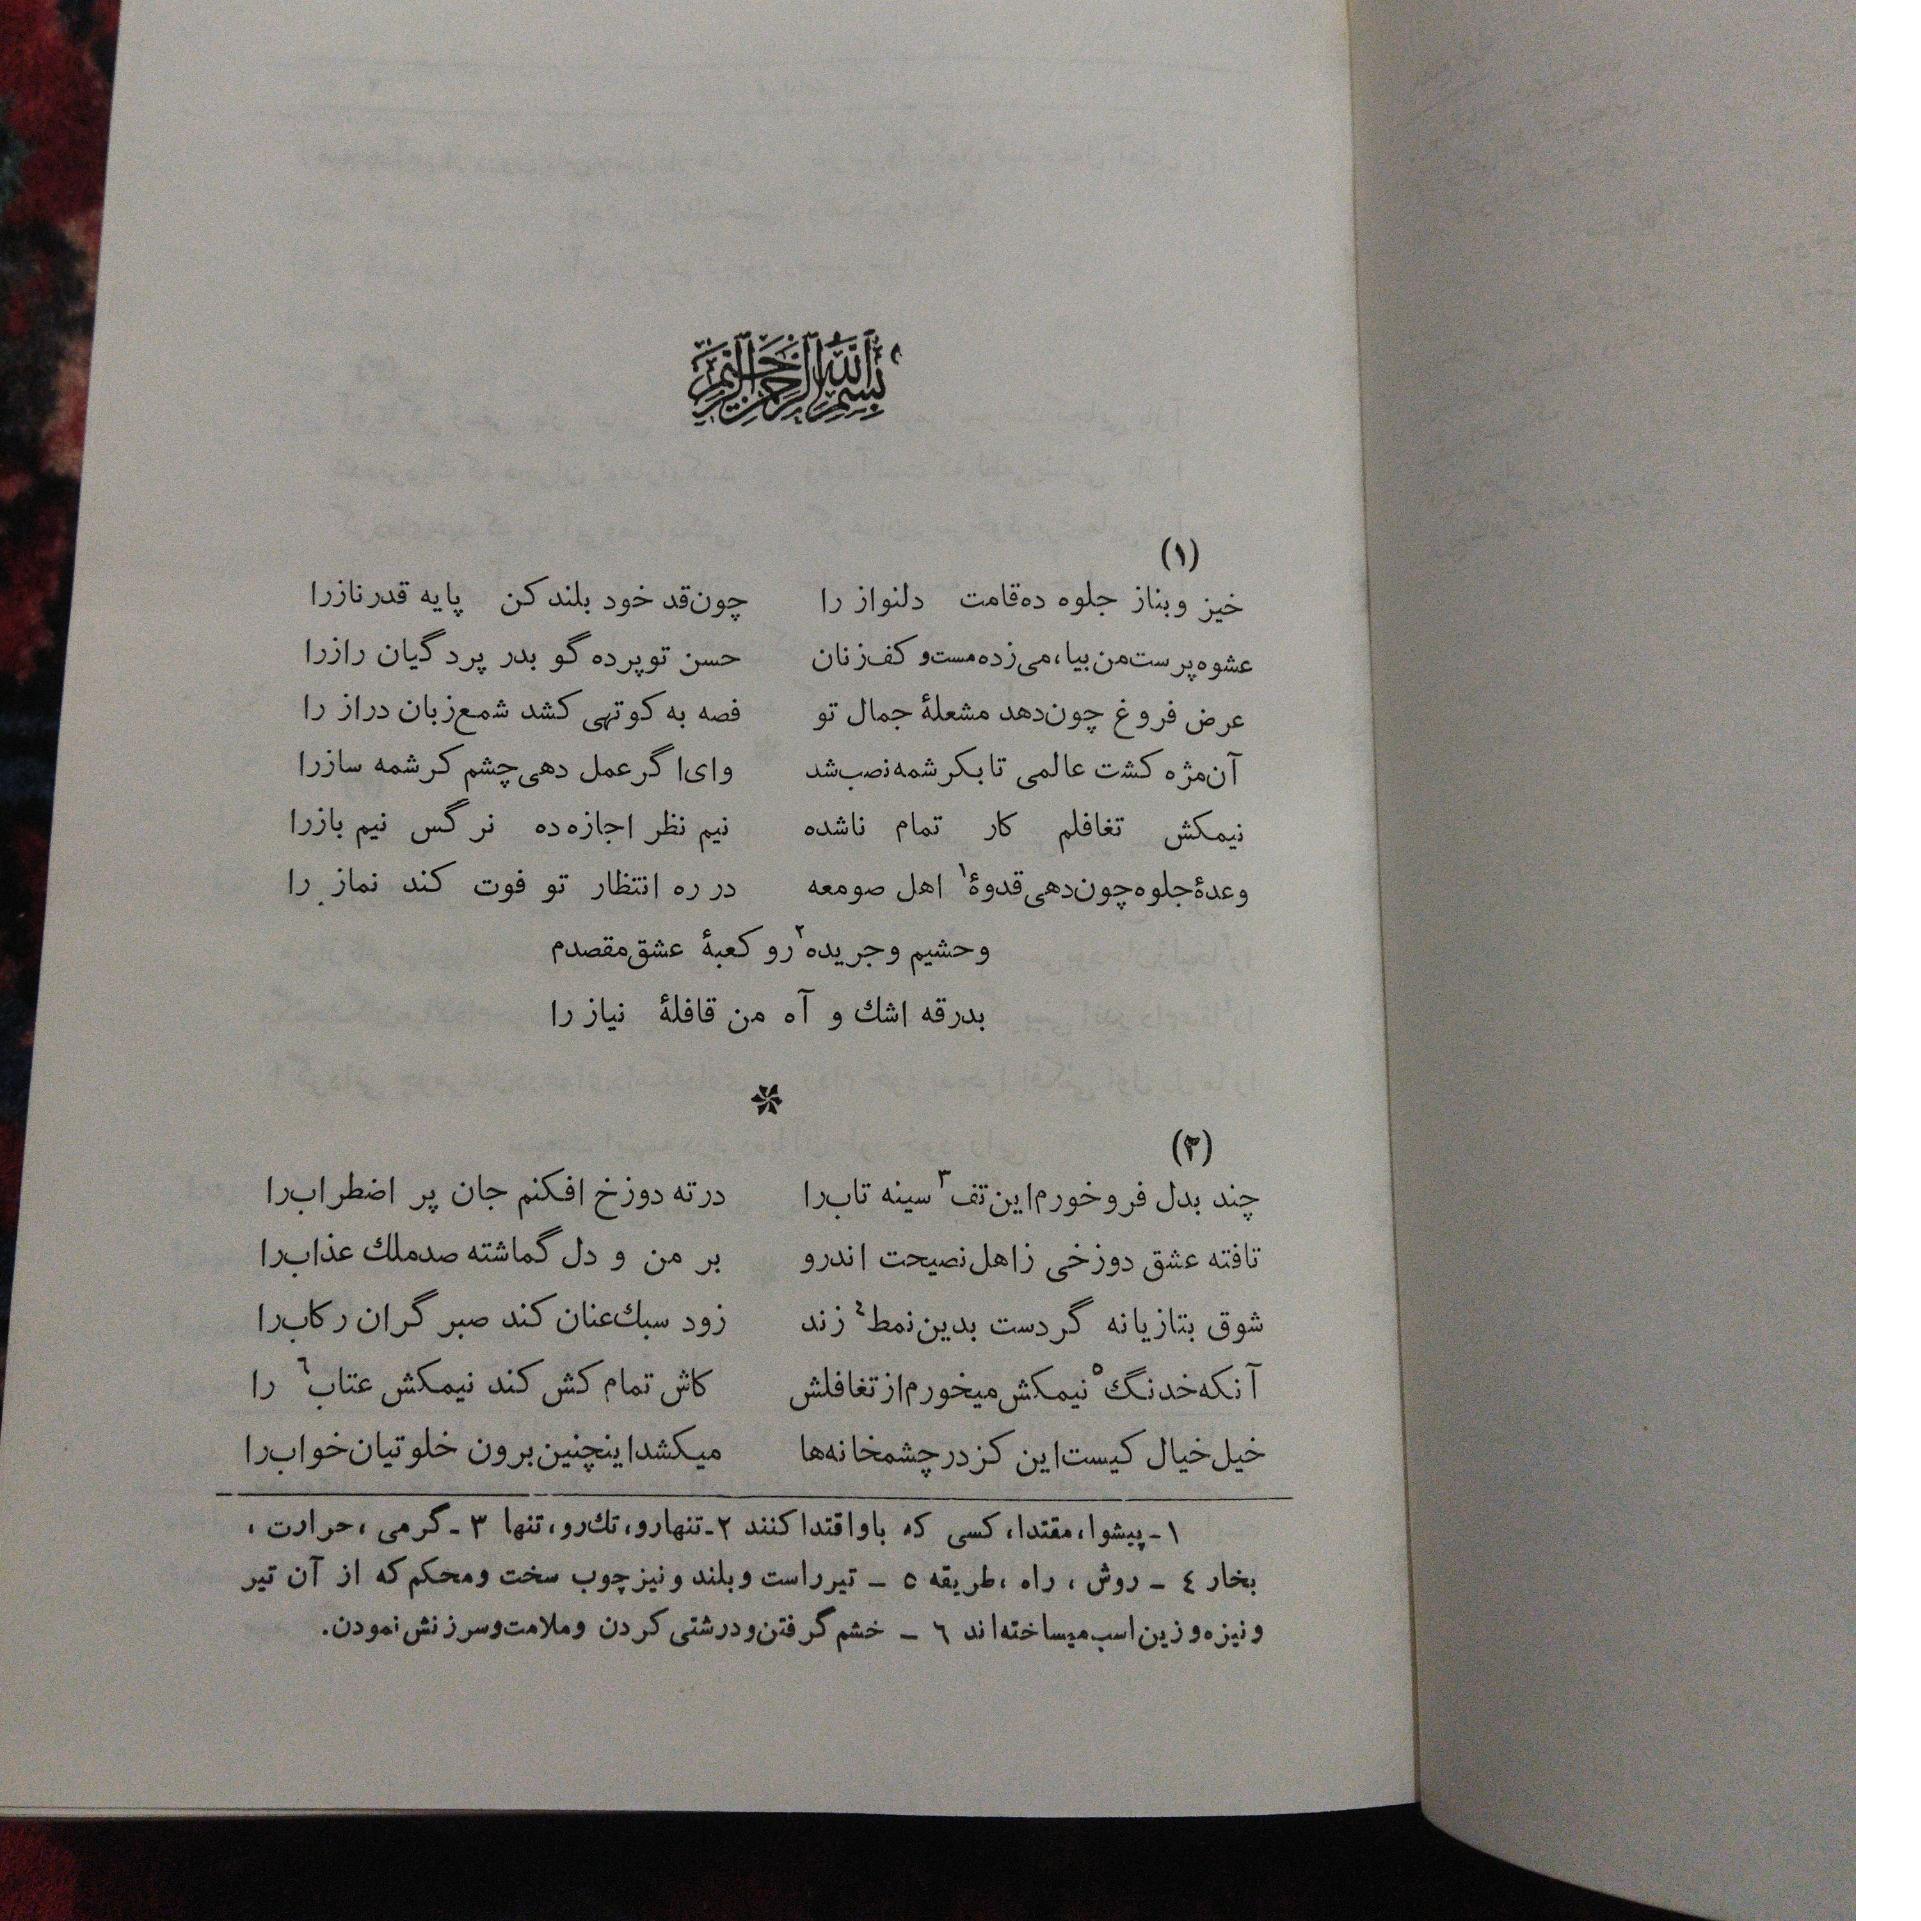 بسم الله الرحمن الرحیم
(۱)
خیز و بناز جلوه ده قامت دلنواز را چون قد خود بلند کن پایه قدر ناز را
عشوه پرست من بیا، می زده مست و کف زنان حسن تو پرده گو بدر پرد گیان راز را
عرض فروغ چون دهد مشعلهٔ جمال تو قصه به کوتهی کشد شمع زبان دراز را
آن مژه کشت عالمی تا بکرشمه نصب شد وای اگر عمل دهی چشم کرشمه ساز را
نیمکش تغافلم کار تمام ناشده نیم نظر اجازه ده نرگس نیم باز را
وعدهٔ جلوه چون دهی قدوهٔ۱ اهل صومعه در ره انتظار تو فوت کند نماز را
وحشیم و جریده۲ رو کعبهٔ عشق مقصدم
بدرقه اشك و آه من قافلهٔ نیاز را
(۲)
چند بدل فرو خورم این تف۳ سینه تاب را در ته دوزخ افکنم جان پر اضطراب را
تافته عشق دوزخی ز اهل نصیحت اندرو بر من و دل گماشته صد ملك عذاب را
شوق بتازیانه گر دست بدین نمط٤ زند زود سبك عنان کند صبر گران رکاب را
آنکه خدنگ٥ نیمکش میخورم از تغافلش کاش تمام کش کند نیمکش عتاب٦ را
خیل خیال کیست این کز در چشمخانه‌ها میکشد اینچنین برون خلوتیان خواب را
۱- پیشوا، مقتدا، کسی که باو اقتدا کنند ۲- تنها رو، تك رو، تنها ۳- گرمی، حرارت،
بخار ٤ - روش، راه، طریقه ٥ - تیر راست و بلند و نیز چوب سخت و محکم که از آن تیر
و نیزه و زین اسب میساخته‌اند ٦ - خشم گرفتن و درشتی کردن و ملامت و سرزنش نمودن.